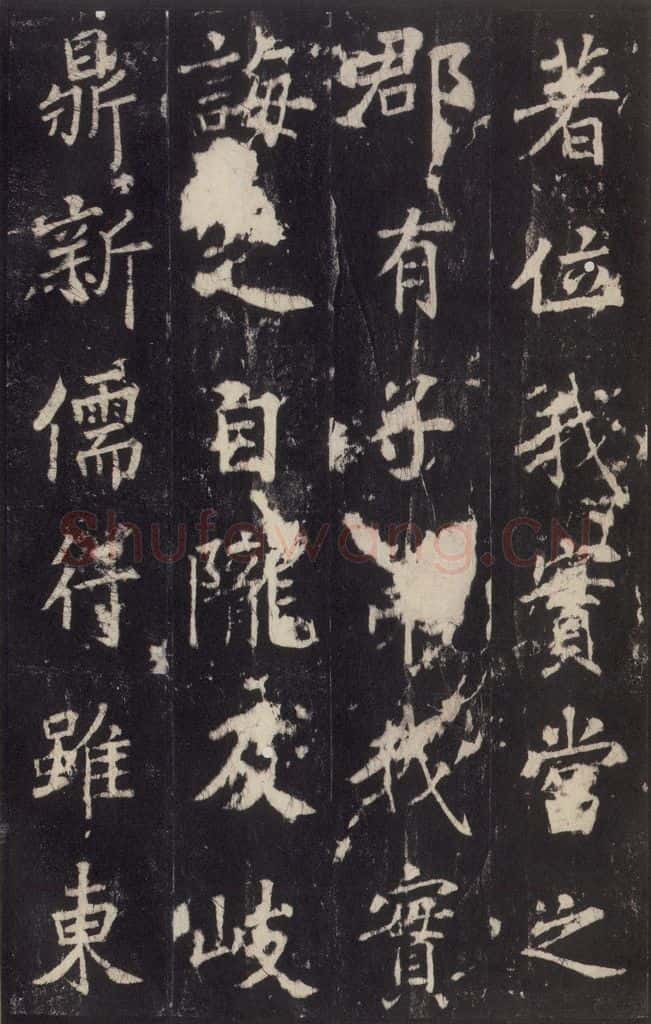 著位我實當之
郡有母我實
誨之自隴及岐
鼎新儒得雖東
Shufawang.CN